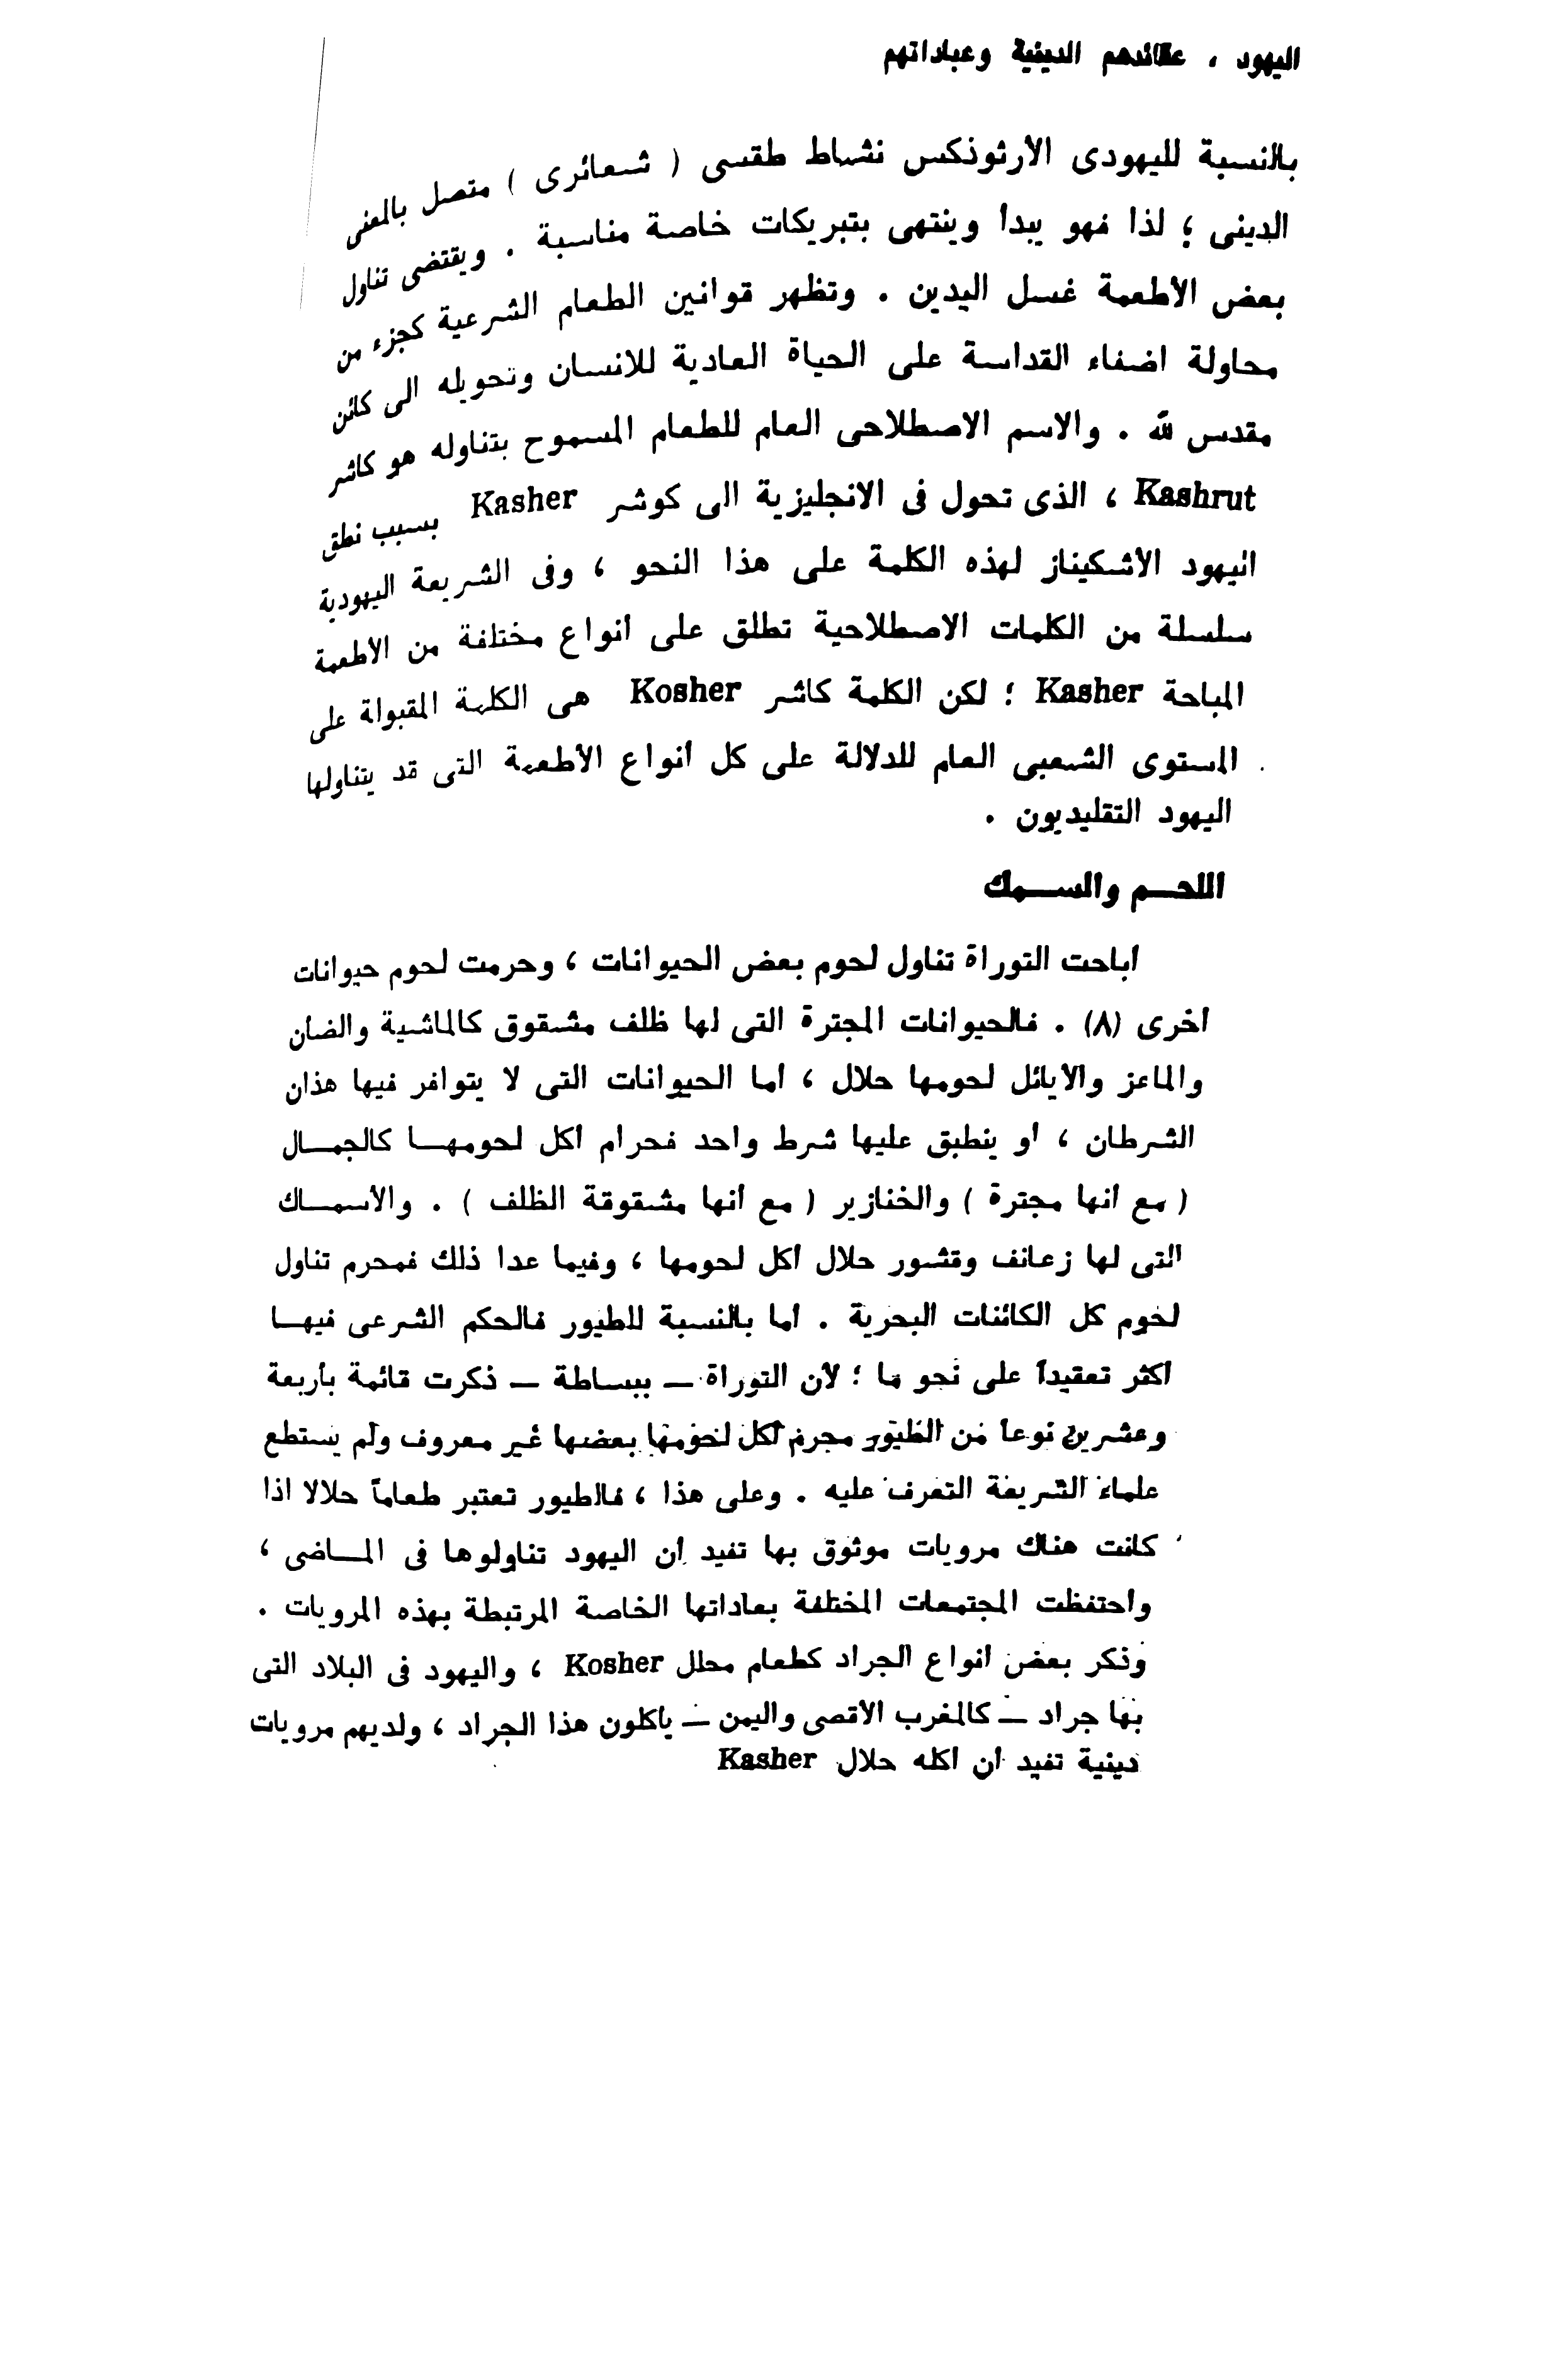 اليهود ، عقائدهم الدينية وعباداتهم
بالنسبة لليهودى الأرثوذكس نشاط طقسى ( شعائرى ) متصل بالمعنى
الدينى ؛ لذا فهو يبدأ وينتهى بتبريكات خاصة مناسبة . ويقتضى تناول
بعض الأطعمة غسل اليدين . وتظهر قوانين الطعام الشرعية كجزء من
محاولة اضفاء القداسة على الحياة العادية للانسان وتحويله الى كائن
مقدس لله . والاسم الاصطلاحى العام للطعام المسموح بتناوله هو كاشر
Kashrut ، الذى تحول فى الانجليزية الى كوشر Kasher بسبب نطق
اليهود الأشكيناز لهذه الكلمة على هذا النحو ، وفى الشريعة اليهودية
سلسلة من الكلمات الاصطلاحية تطلق على أنواع مختلفة من الأطعمة
المباحة Kasher ؛ لكن الكلمة كاشر Kosher هى الكلمة المقبولة على
المستوى الشعبى العام للدلالة على كل أنواع الأطعمة التى قد يتناولها
اليهود التقليديون .
اللحــم والســمك
أباحت التوراة تناول لحوم بعض الحيوانات ، وحرمت لحوم حيوانات
أخرى (٨) . فالحيوانات المجترة التى لها ظلف مشقوق كالماشية والضأن
والماعز والأيائل لحومها حلال ، أما الحيوانات التى لا يتوافر فيها هذان
الشرطان ، أو ينطبق عليها شرط واحد فحرام أكل لحومهــا كالجمــال
( مع أنها مجترة ) والخنازير ( مع أنها مشقوقة الظلف ) . والأسمــاك
التى لها زعانف وقشور حلال أكل لحومها ، وفيما عدا ذلك فمحرم تناول
لحوم كل الكائنات البحرية . أما بالنسبة للطيور فالحكم الشرعى فيهــا
أكثر تعقيداً على نحو ما ؛ لأن التوراة ــ ببساطة ــ ذكرت قائمة بأربعة
وعشرين نوعا من الطيور محرم أكل لحومها بعضها غير معروف ولم يستطع
علماء الشريعة التعرف عليه . وعلى هذا ، فالطيور تعتبر طعاماً حلالا اذا
كانت هناك مرويات موثوق بها تفيد أن اليهود تناولوها فى المــاضى ،
واحتفظت المجتمعات المختلفة بعاداتها الخاصة المرتبطة بهذه المرويات .
وذكر بعض أنواع الجراد كطعام محلل Kosher ، واليهود فى البلاد التى
بها جراد ــ كالمغرب الأقصى واليمن ــ يأكلون هذا الجراد ، ولديهم مرويات
دينية تفيد أن أكله حلال Kasher